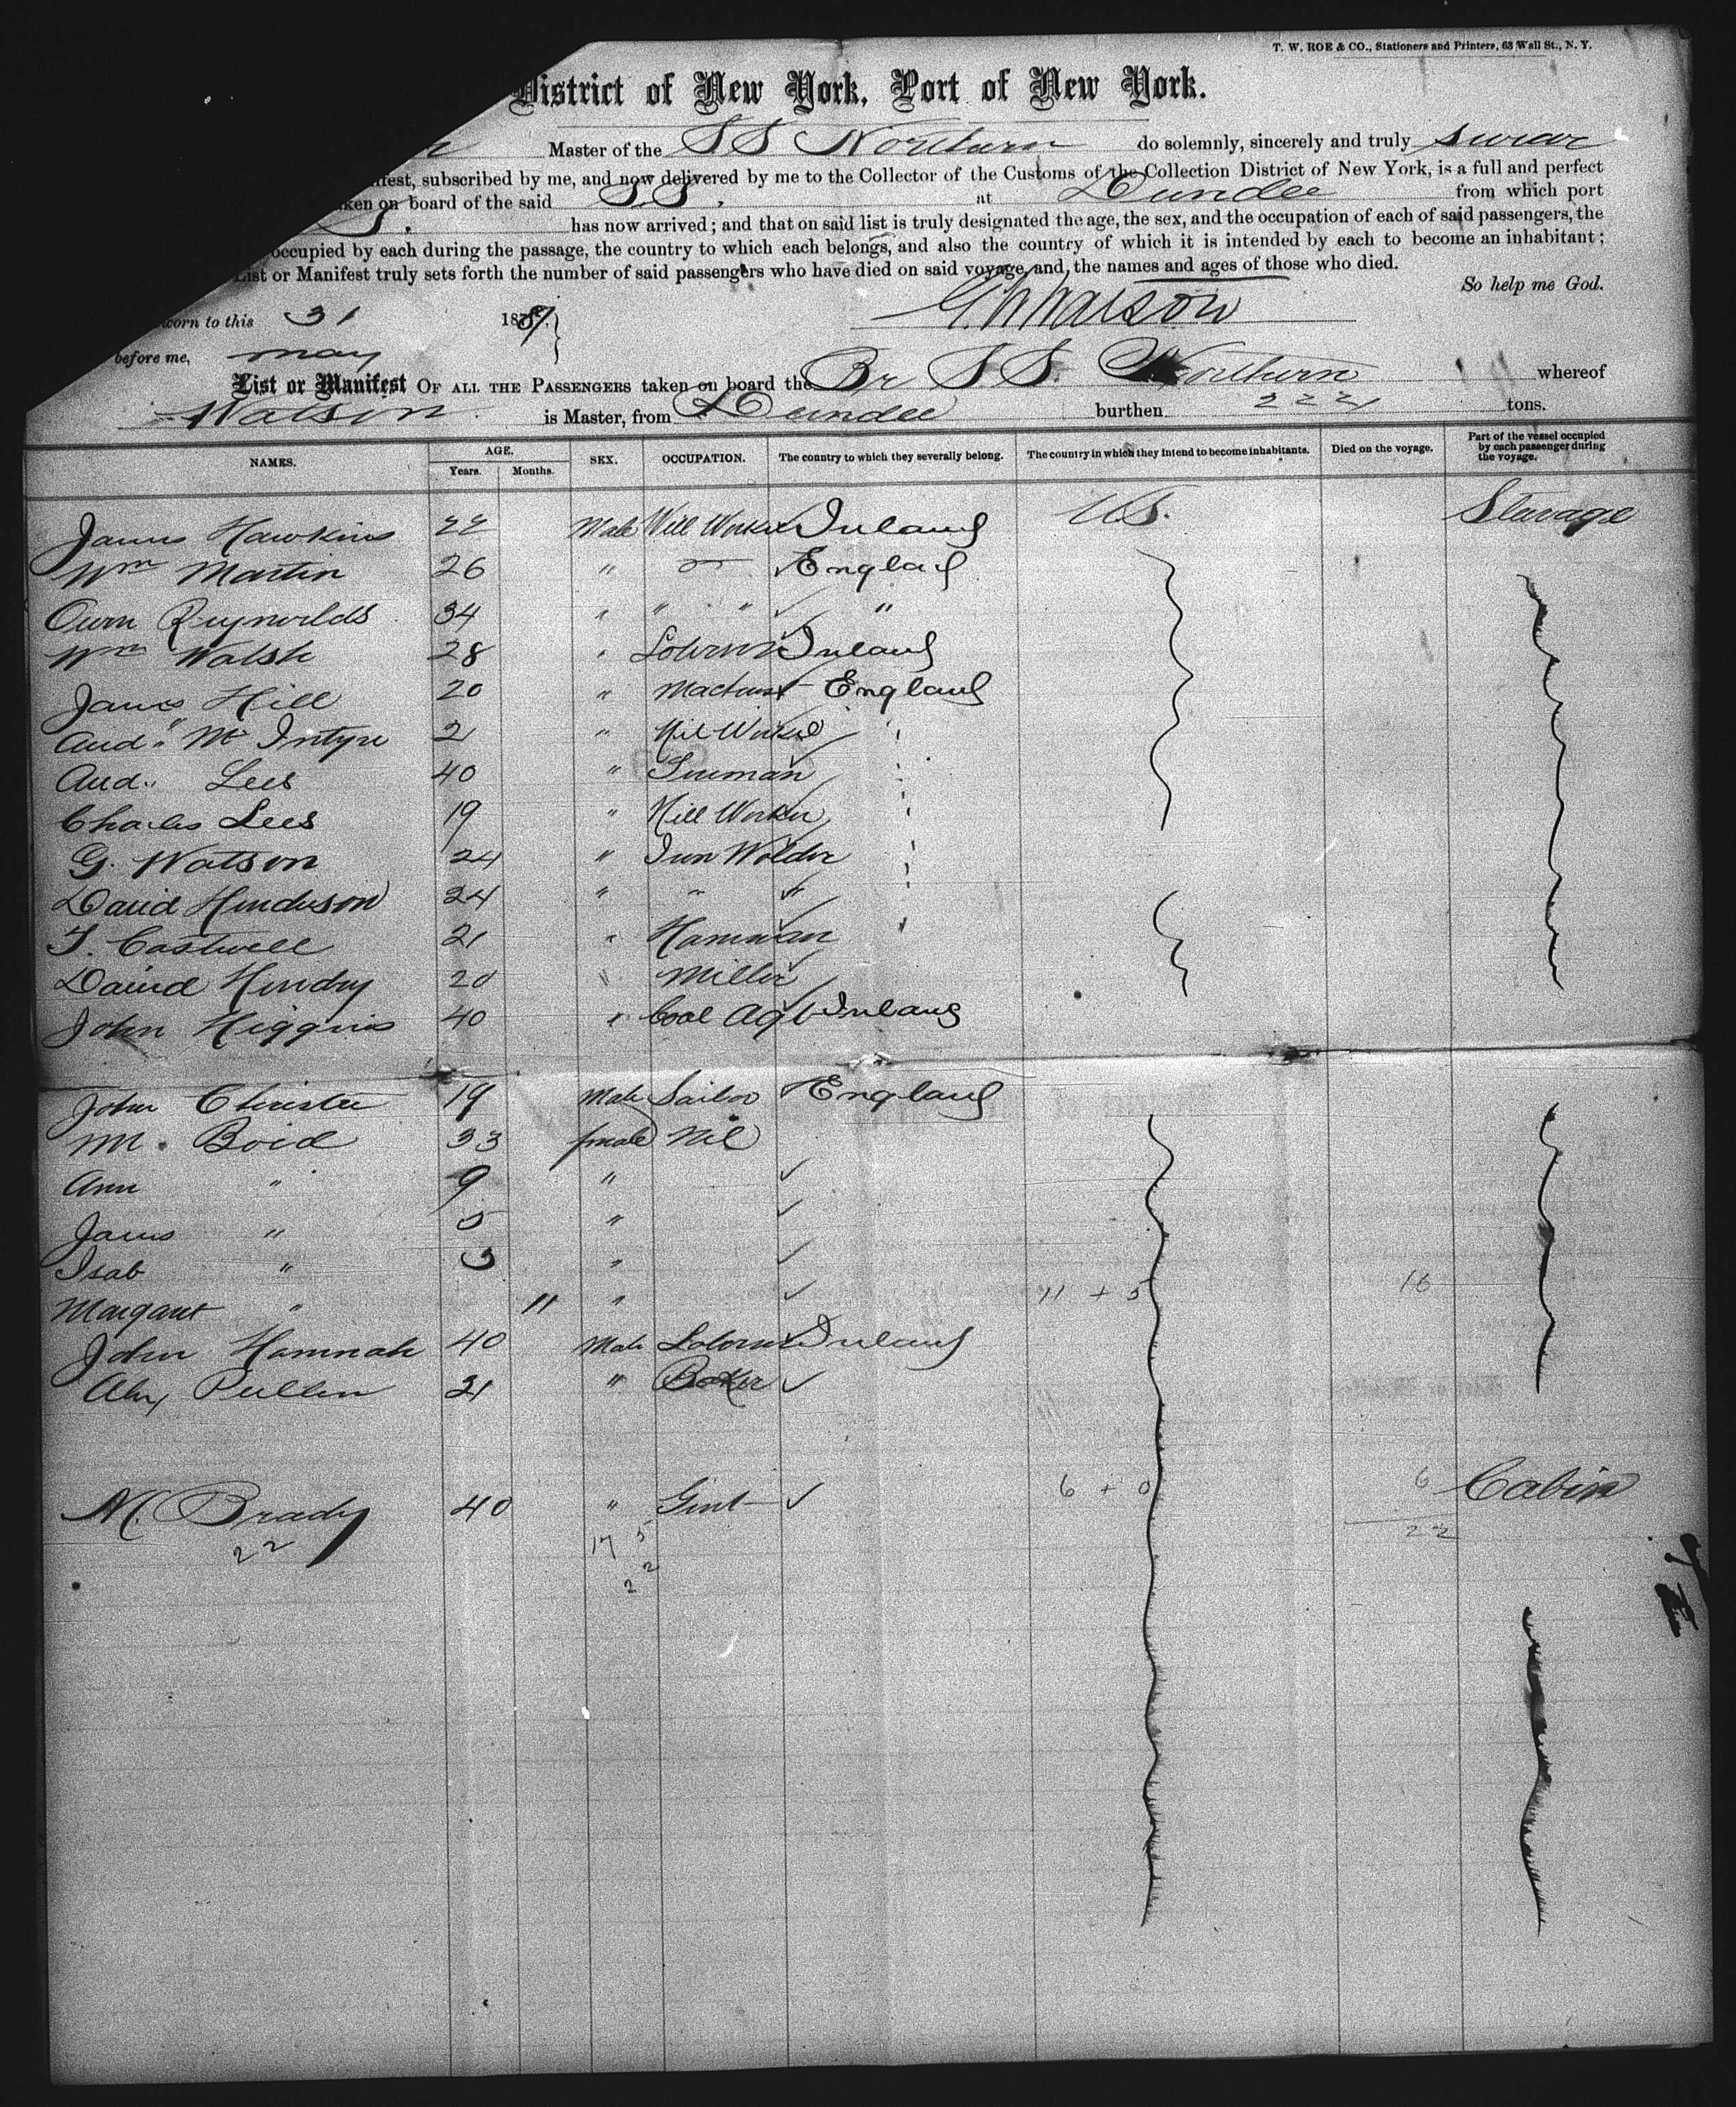 T. W. ROE & CO., Stationers and Printers, 63 Wall St., N. Y.
District of New York, Port of New York.
Master of the SS Northern do solemnly, sincerely and truly swear
subscribed by me, and now delivered by me to the Collector of the Customs of the Collection District of New York, is a full and perfect
on board of the said S.S. at Dundee from which port
has now arrived; and that on said list is truly designated the age, the sex, and the occupation of each of said passengers, the
occupied by each during the passage, the country to which each belongs, and also the country of which it is intended by each to become an inhabitant;
List or Manifest truly sets forth the number of said passengers who have died on said voyage, and, the names and ages of those who died.
So help me God.
to this 31 188
G. W Watson
before me, may
List or Manifest OF ALL THE PASSENGERS taken on board the Br SS. Northern whereof
Watson is Master, from Dundee burthen 222 tons.
NAMES. AGE. Years. Months. SEX. OCCUPATION. The country to which they severally belong. The country in which they intend to become inhabitants. Died on the voyage. Part of the vessel occupied by each passenger during the voyage.
James Hawkins 22 Male Mill Worker Ireland U.S. Steerage
Wm Martin 26 " England
Owen Reynolds 34 " " " "
Wm Walsh 28 " Laborer Ireland
James Hill 20 " Machinist England
And. McIntyre 21 " Mill Worker
And. Lees 40 "
Charles Lees 19 " Mill Worker
G. Watson 24 " Iron Molder
David Henderson 24 " " "
T. Castwell 21 "
David Hendry 20 " Miller
John Higgins 40 " Coal Agt Ireland
John Christie 19 Male Sailor England
M. Boid 33 female Nil
Ann " 9 "
James " 5 "
Isab " 3 "
Margaret " 11 " 11 + 5 16
John Hannah 40 Male Laborer Ireland
Alex Pullen 21 " Baker
M. Brady 40 " Gent 6 + 0 6 Cabin
22 17 5 22
22